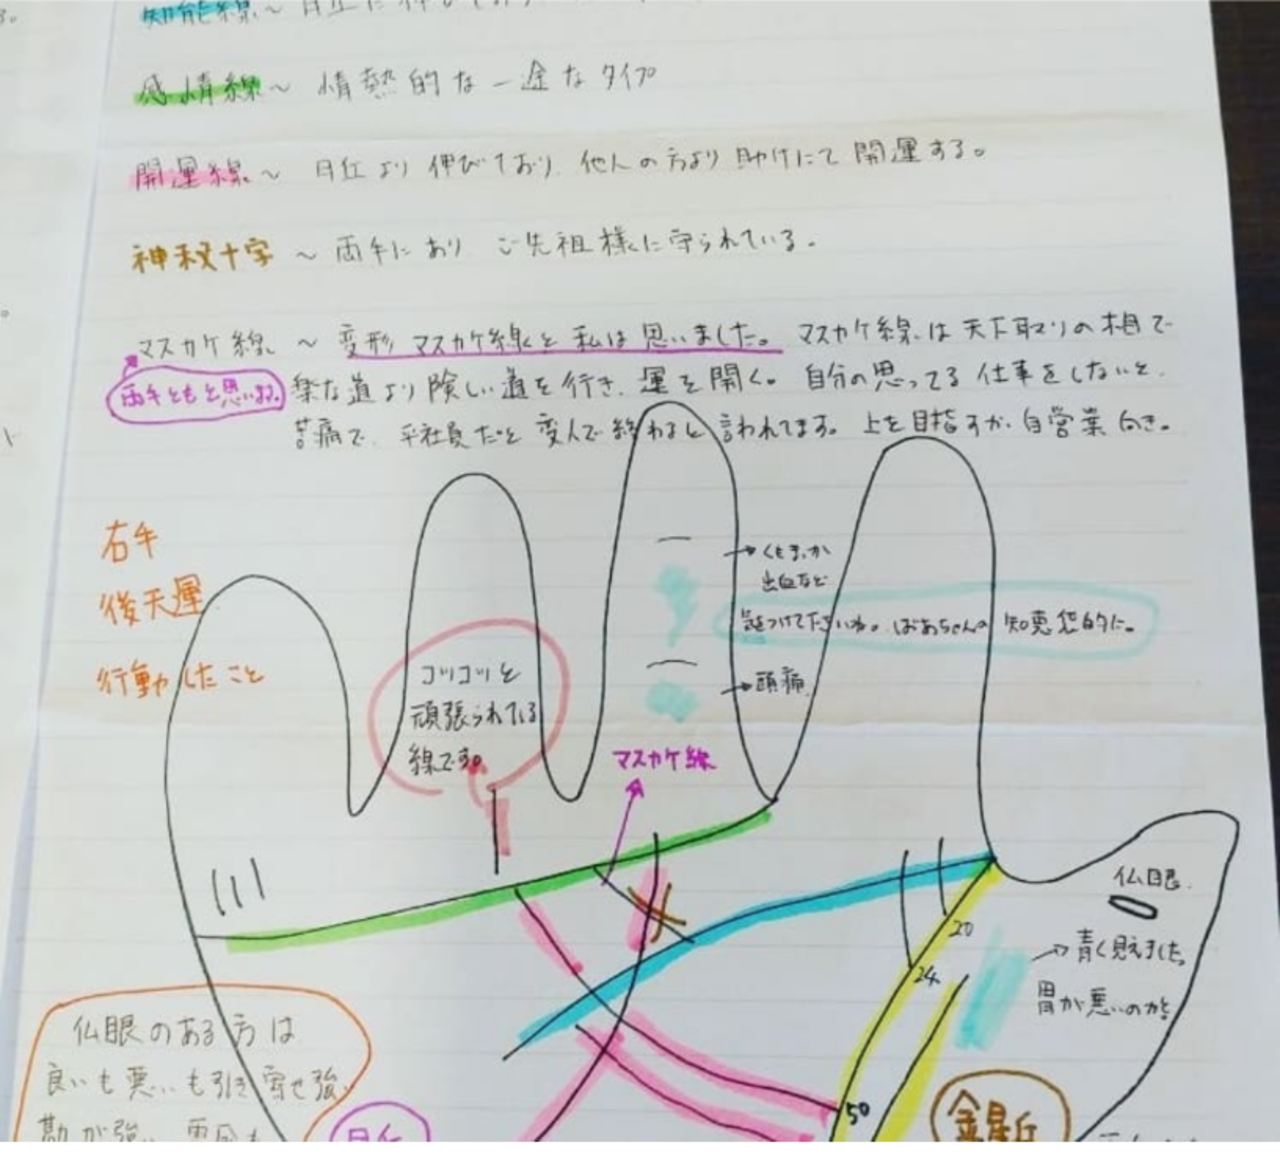 知能線～月丘に伸びており
感情線～ 情熱的な一途なタイプ
開運線～ 月丘より伸びており、他人の方より助けにて開運する。
神秘十字 ～ 両手にあり ご先祖様に守られている。
マスカケ線 ～ 変形マスカケ線と私は思いました。マスカケ線は天下取りの相で
両手ともと思いる。
楽な道より険しい道を行き、運を開く。自分の思ってる仕事をしないと、
苦痛で、平社員だと変人で終わると言われてます。上を目指すか、自営業向き。
右手
後天運
行動したこと
コツコツと
頑張られている
線です。
くも膜か
出血など
気をつけて下さいね。ばあちゃんの知恵袋的に。
頭痛
マスカケ線
仏眼
20
24
青く見えました
胃が悪いのかと
50
仏眼のある方は
良いも悪いも引き寄せ強
勘が強い
月丘
金星丘